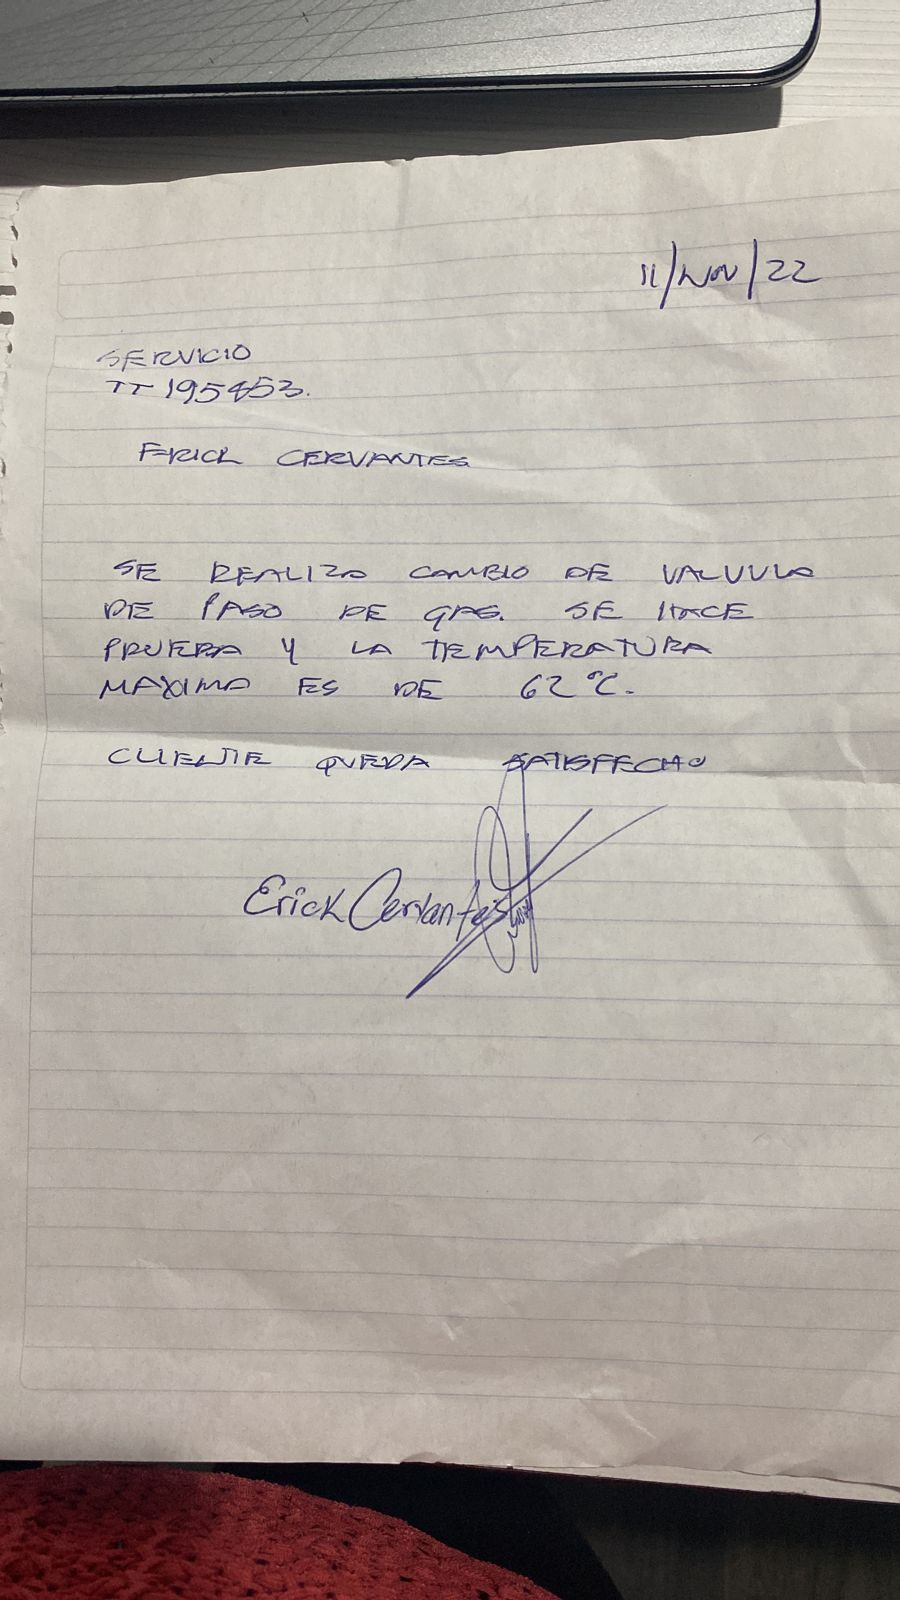 11/NOV/22
SERVICIO
TT 195453.
ERICK CERVANTES
SE REALIZO CAMBIO DE VALVULA
DE PASO DE GAS. SE HACE
PRUEBA Y LA TEMPERATURA
MAXIMA ES DE 62°C.
CLIENTE QUEDA SATISFECHO
Erick Cervantes